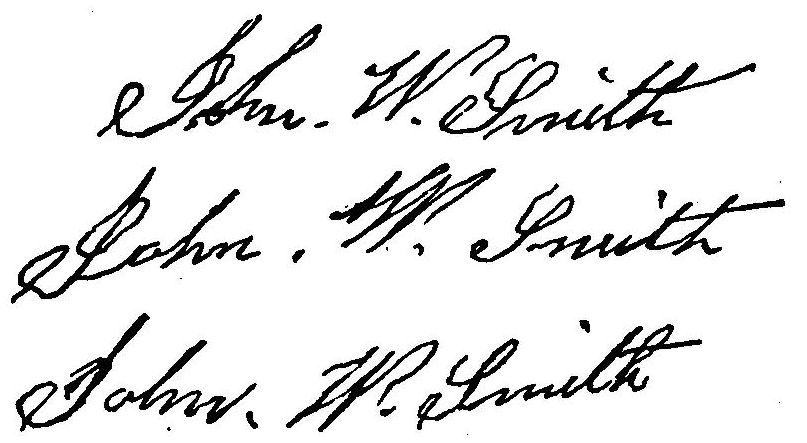 John. W. Smith
John. W. Smith
John. W. Smith